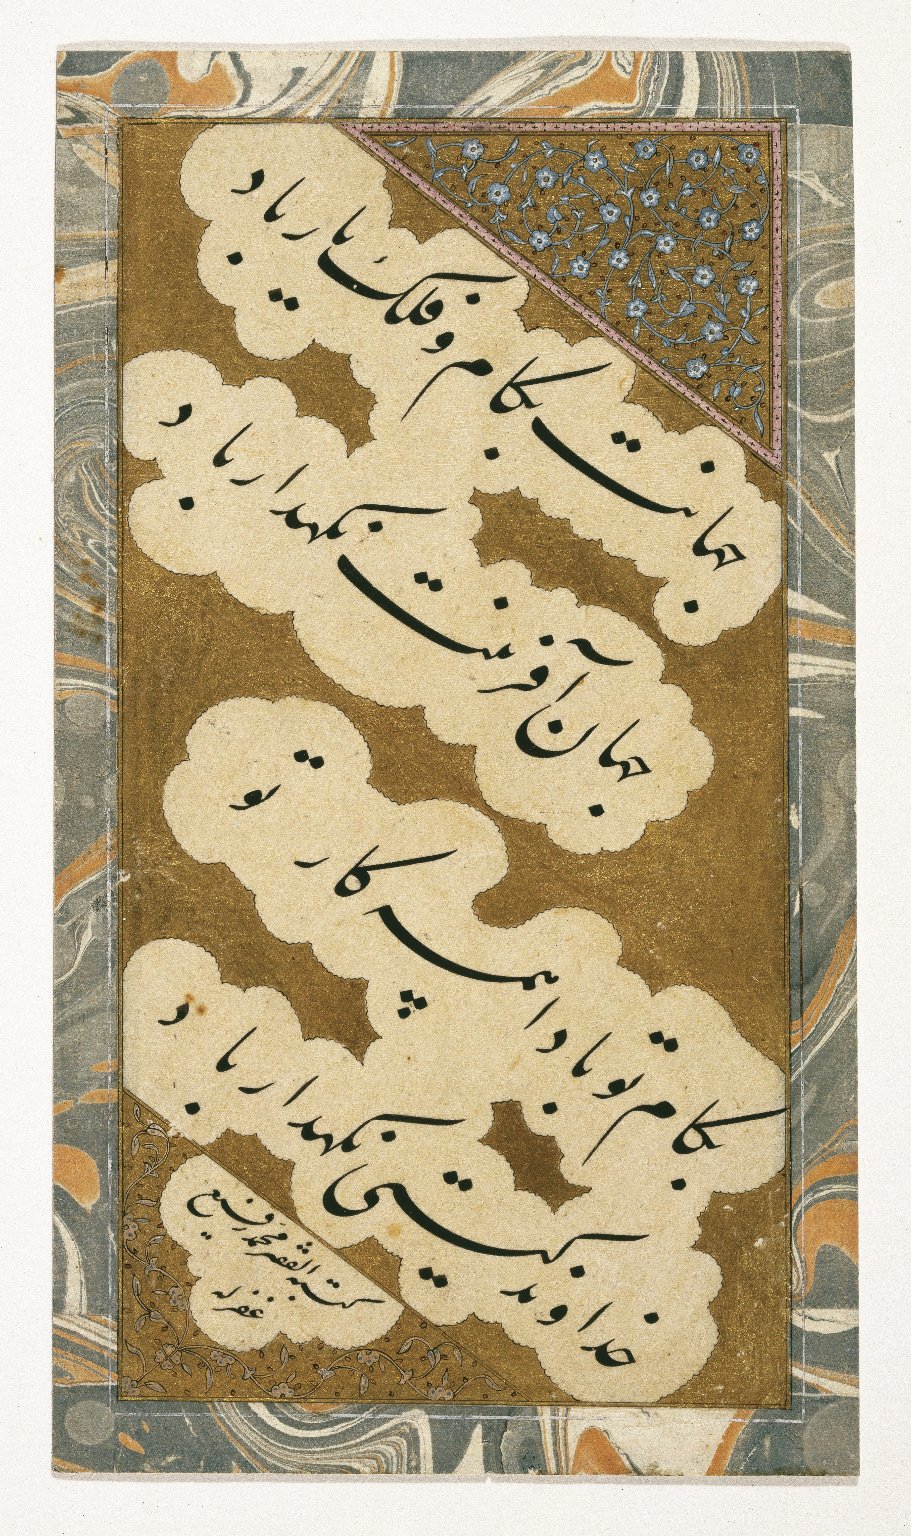 جهانت بکام و فلک یار باد
جهان آفرینت نگهدار باد
بکام تو بادا کار تو
خداوند گیتی نگهدار باد
کتبه الفقیر محمد رفیع
غفر له